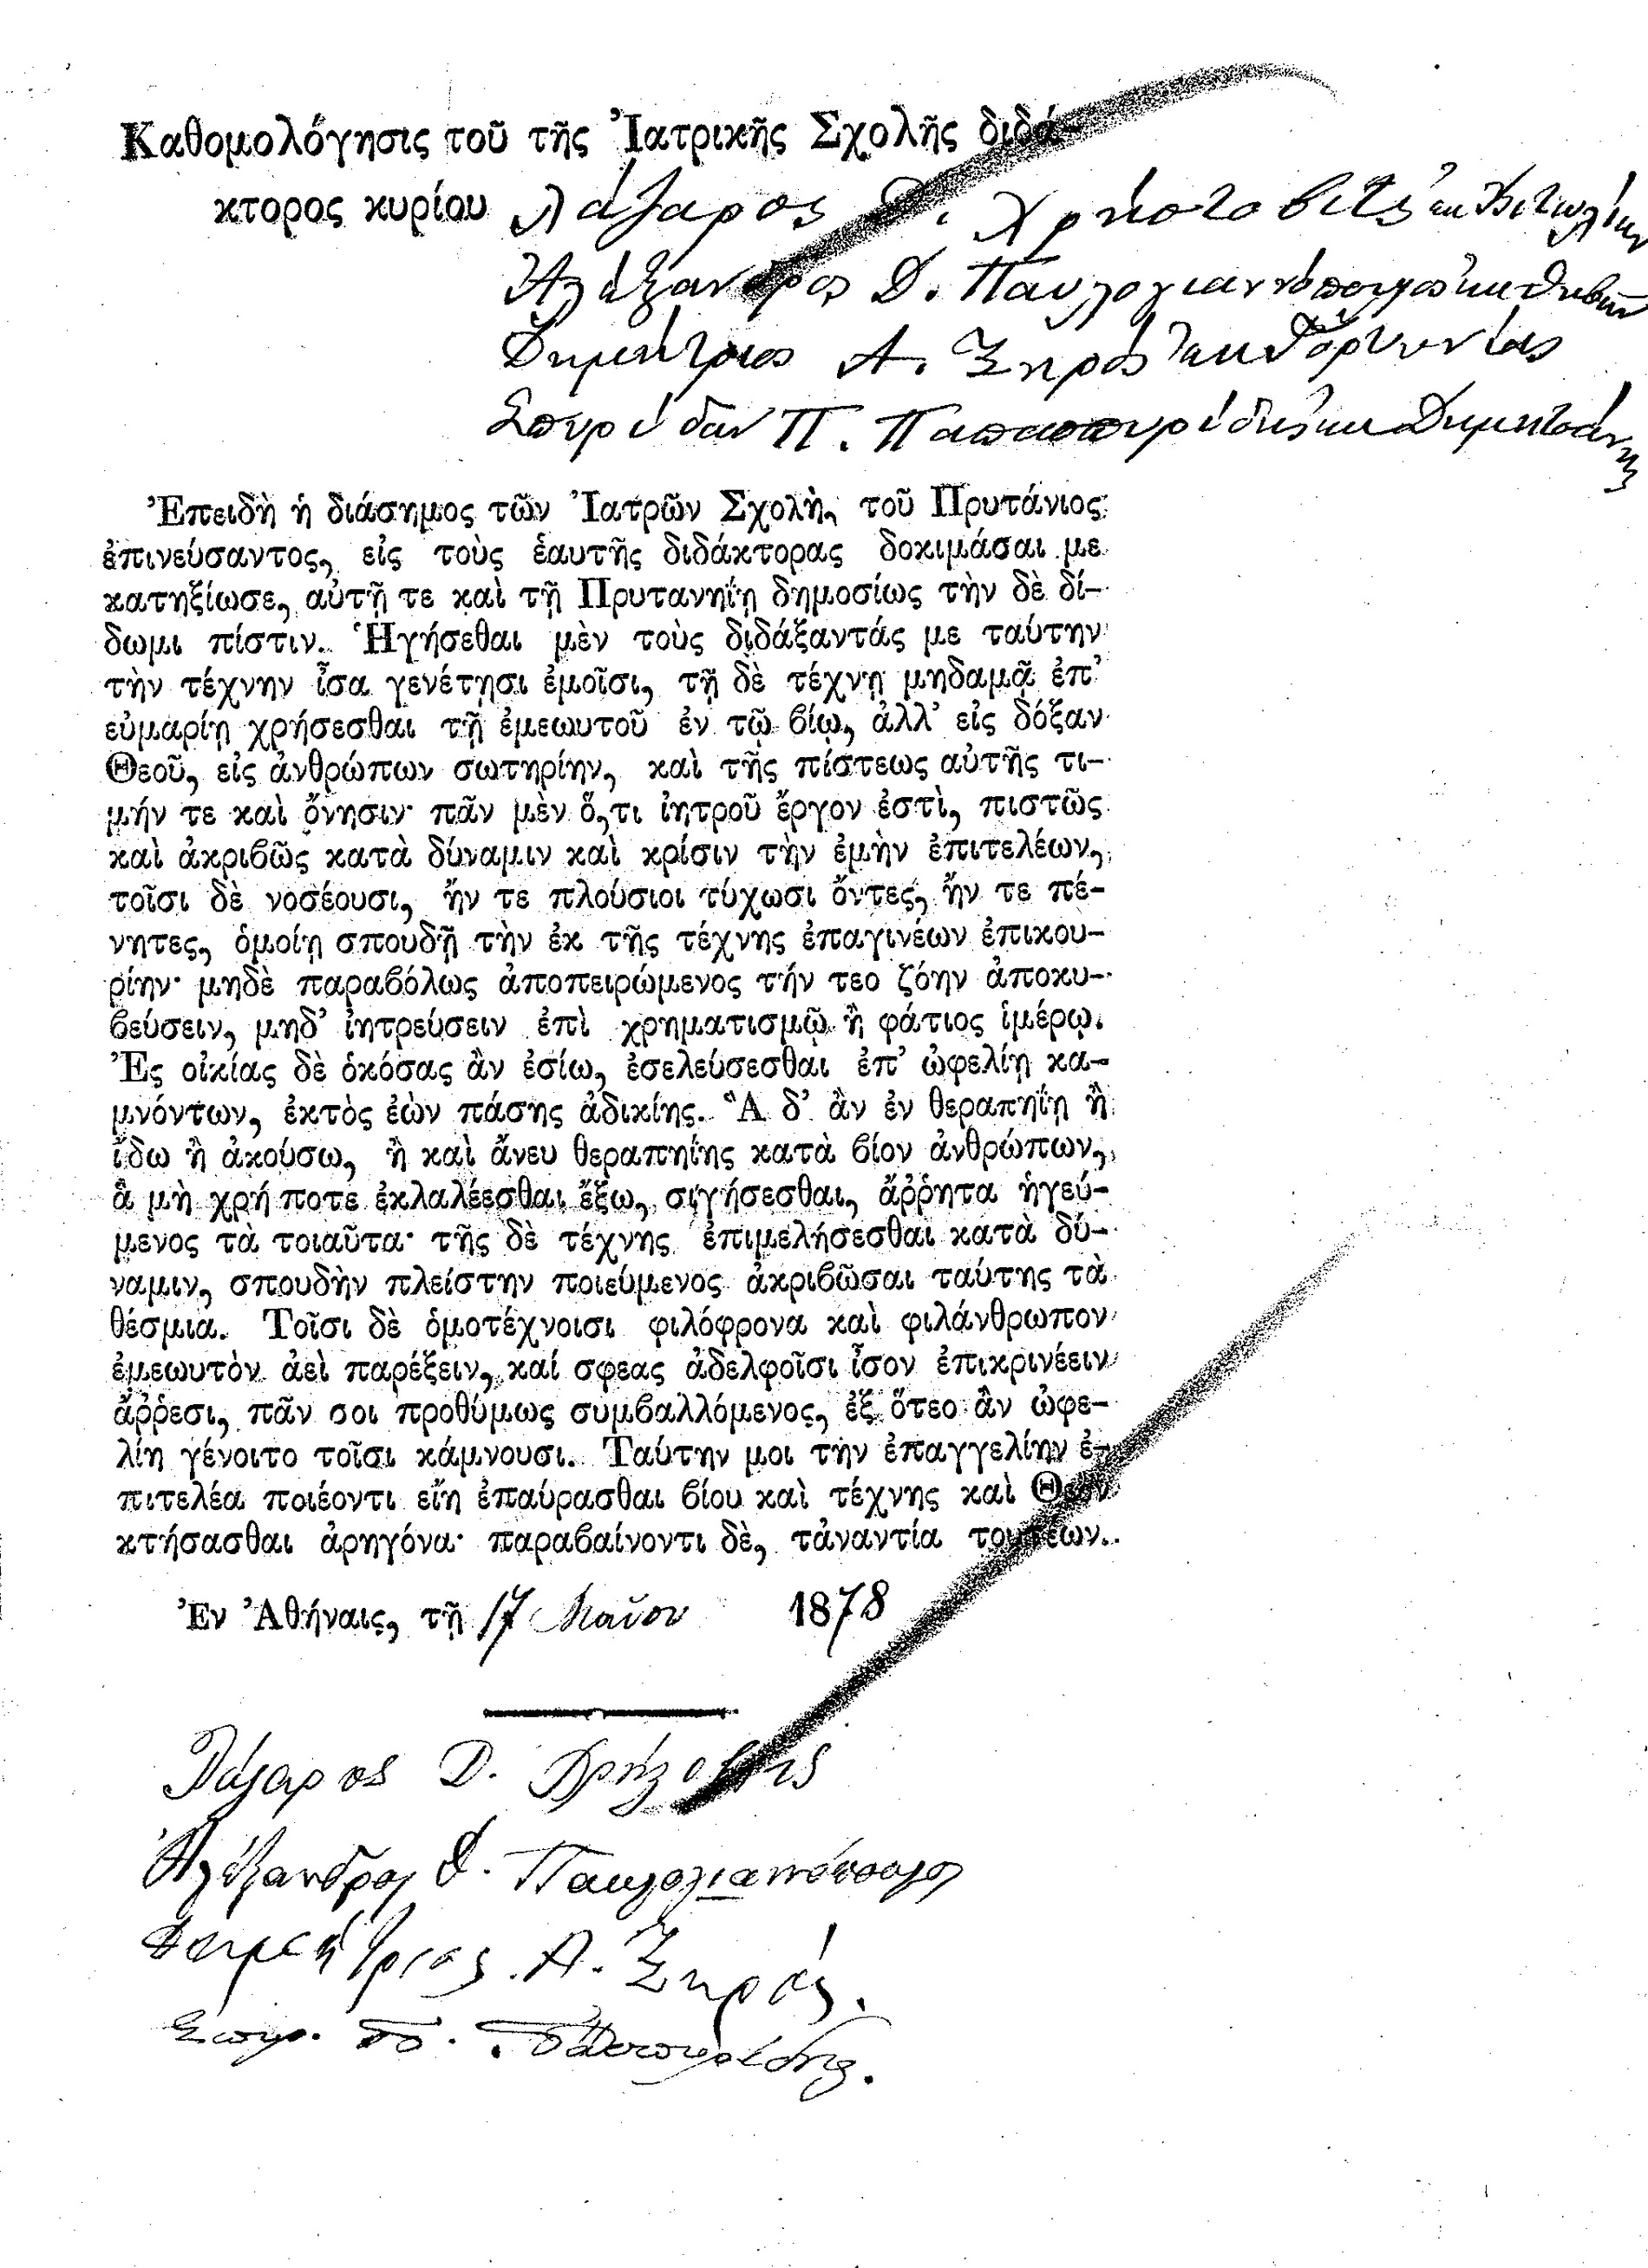 Καθομολόγησις τοῦ τῆς Ἰατρικῆς Σχολῆς διδά-
κτορος κυρίου Λάζαρος Δ. Χρηστοβίτς ἐκ Βιτωλίων
Ἀλέξανδρος Δ. Παυλογιαννόπουλος ἐκ Θηβῶν
Δημήτριος Α. Ξηρός ἐκ Γορτυνίας
Σπυρίδων Π. Παπασπυρίδης ἐκ Δημητσάνης
Ἐπειδὴ ἡ διάσημος τῶν Ἰατρῶν Σχολὴ, τοῦ Πρυτάνιος
ἐπινεύσαντος, εἰς τοὺς ἑαυτῆς διδάκτορας δοκιμάσαι με
κατηξίωσε, αὐτῇ τε καὶ τῇ Πρυτανηΐῃ δημοσίως τὴν δὲ δί-
δωμι πίστιν. Ἡγήσεθαι μὲν τοὺς διδάξαντάς με ταύτην
τὴν τέχνην ἶσα γενέτῃσι ἐμοῖσι, τῇ δὲ τέχνῃ μηδαμᾷ ἐπ’
εὐμαρίῃ χρήσεσθαι τῇ ἐμεωυτοῦ ἐν τῷ βίῳ, ἀλλ’ εἰς δόξαν
Θεοῦ, εἰς ἀνθρώπων σωτηρίην, καὶ τῆς πίστεως αὐτῆς τι-
μήν τε καὶ ὄνησιν· πᾶν μὲν ὅ,τι ἰητροῦ ἔργον ἐστὶ, πιστῶς
καὶ ἀκριβῶς κατὰ δύναμιν καὶ κρίσιν τὴν ἐμὴν ἐπιτελέων,
τοῖσι δὲ νοσέουσι, ἤν τε πλούσιοι τύχωσι ὄντες, ἤν τε πέ-
νητες, ὁμοίῃ σπουδῇ τὴν ἐκ τῆς τέχνης ἐπαγινέων ἐπικου-
ρίην· μηδὲ παραβόλως ἀποπειρώμενος τήν τεο ζόην ἀποκυ-
βεύσειν, μηδ’ ἰητρεύσειν ἐπὶ χρηματισμῷ ἢ φάτιος ἱμέρῳ.
Ἐς οἰκίας δὲ ὁκόσας ἂν ἐσίω, ἐσελεύσεσθαι ἐπ’ ὠφελίῃ κα-
μνόντων, ἐκτὸς ἐὼν πάσης ἀδικίης. Ἃ δ’ ἂν ἐν θεραπηΐῃ ἢ
ἴδω ἢ ἀκούσω, ἢ καὶ ἄνευ θεραπηΐης κατὰ βίον ἀνθρώπων,
ἃ μὴ χρή ποτε ἐκλαλέεσθαι ἔξω, σιγήσεσθαι, ἄῤῥητα ἡγεύ-
μενος τὰ τοιαῦτα· τῆς δὲ τέχνης ἐπιμελήσεσθαι κατὰ δύ-
ναμιν, σπουδὴν πλείστην ποιεύμενος ἀκριβῶσαι ταύτης τὰ
θέσμια. Τοῖσι δὲ ὁμοτέχνοισι φιλόφρονα καὶ φιλάνθρωπον
ἐμεωυτὸν ἀεὶ παρέξειν, καί σφεας ἀδελφοῖσι ἶσον ἐπικρινέειν
ἄῤῥεσι, πᾶν σοι προθύμως συμβαλλόμενος, ἐξ ὅτεο ἂν ὠφε-
λίη γένοιτο τοῖσι κάμνουσι. Ταύτην μοι τὴν ἐπαγγελίην ἐ-
πιτελέα ποιέοντι εἴη ἐπαύρασθαι βίου καὶ τέχνης καὶ Θεὸν
κτήσασθαι ἀρηγόνα· παραβαίνοντι δὲ, τἀναντία τουτέων.
Ἐν Ἀθήναις, τῇ 17 Μαΐου 1878
Λάζαρος Δ.
Ἀλέξανδρος Δ. Παυλογιαννόπουλος
Δημήτριος Α. Ξηρός.
Σπυρ. Π. Παπασπυρίδης.